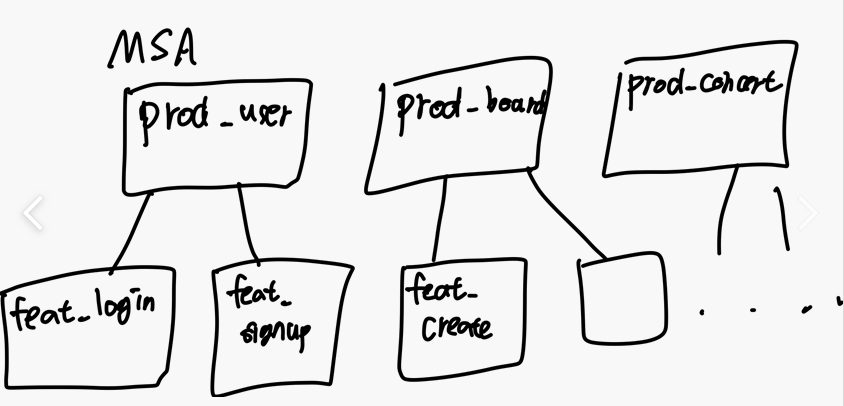 MSA
prod_user
prod_board
prod_concert
feat_login
feat_
signup
feat_
create